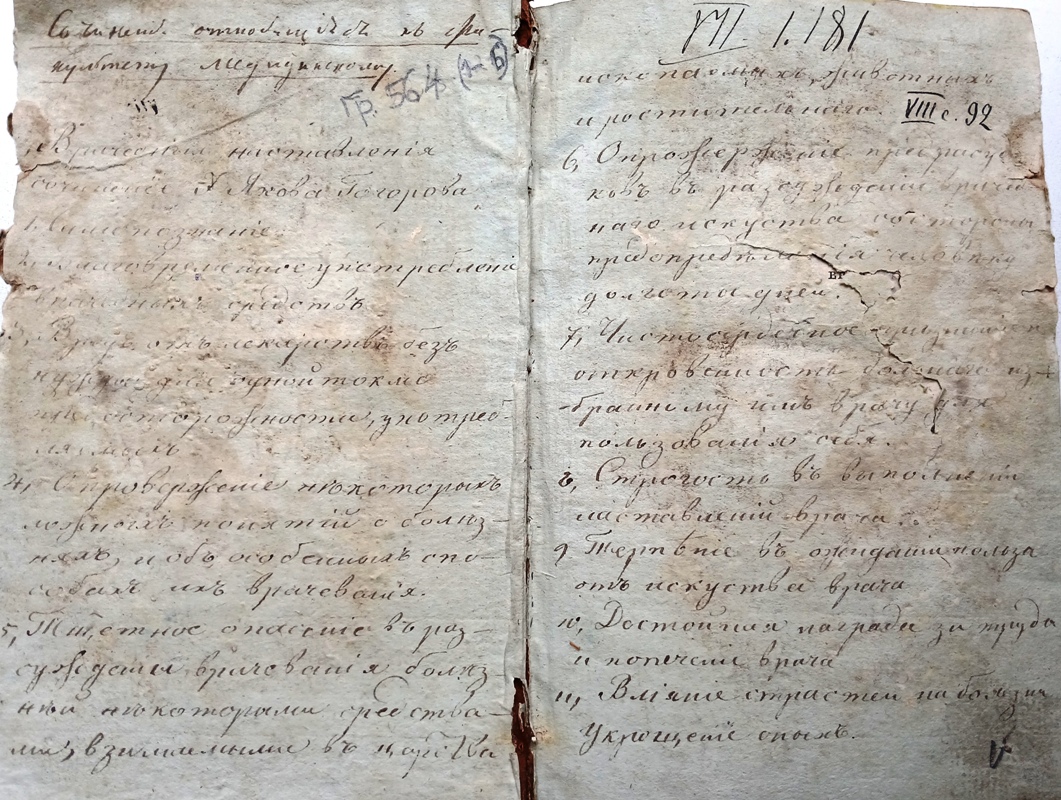 Сочиненiе относящiеся къ фа-
культету Медицинскому.
Гр. 564 (1-Б)
Врачебныя наставленiя
сочиненiе Якова Гогорова
1, Самопознанiе.
2, Благовременное употребленiе
врачебныхъ средствъ
3, Вредъ отъ лекарствъ безъ
нужды, для одной токмо
предосторожности, употреб-
ляемыхъ
4, Опроверженiе нѣкоторыхъ
ложныхъ понятiй о болѣз-
няхъ, и объ особенныхъ спо-
собахъ ихъ врачеванiя.
5, Тщетное опасенiе въ раз-
сужденiи врачеванiя болѣз
ней нѣкоторыми средства-
ми, взимаемыми въ царства
VII. 1.181
ископаемыхъ, животныхъ
и растительнаго.
VIII с. 92
6, Опроверженiе предразсуд
ковъ въ разсужденiи врачеб
наго искуства со стороны
предопредѣленiя человѣку
долготы дней.
ВГ
7, Чистосердечное признанiе и
откровенность больнаго из-
бранному имъ врачу для
пользованiя себя.
8, Строгость въ выполненiи
наставленiй врача.
9, Терпѣнiе въ ожиданiи пользы
отъ искуства врача
10, Достойная награда за труды
и попеченiе врача
11, Влiянiе страстей на болѣзни
Укрощенiе оныхъ.
V